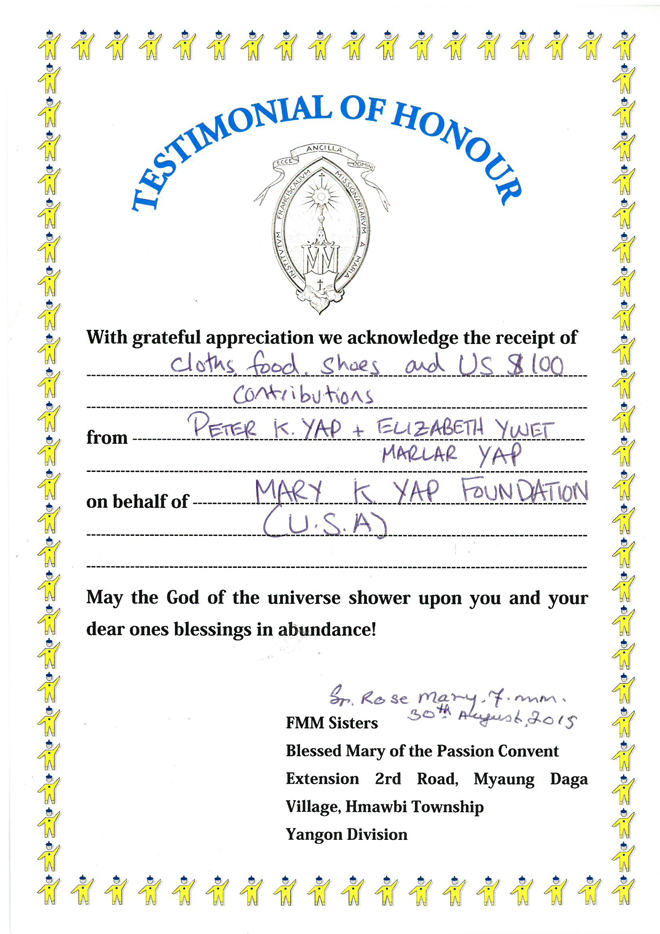 TESTIMONIAL OF HONOUR
ECCE ANCILLA DOMINI
INSTITUTUM FRANCISCALIUM MISSIONARIARUM A MARIA
MM
With grateful appreciation we acknowledge the receipt of
cloths food. shoes and US $100
contributions
from PETER K. YAP + ELIZABETH YWET
MARLAR YAP
on behalf of MARY K YAP FOUNDATION
(U.S.A)
May the God of the universe shower upon you and your
dear ones blessings in abundance!
Sr. Rose Mary. f.mm.
FMM Sisters 30th August, 2015
Blessed Mary of the Passion Convent
Extension 2rd Road, Myaung Daga
Village, Hmawbi Township
Yangon Division